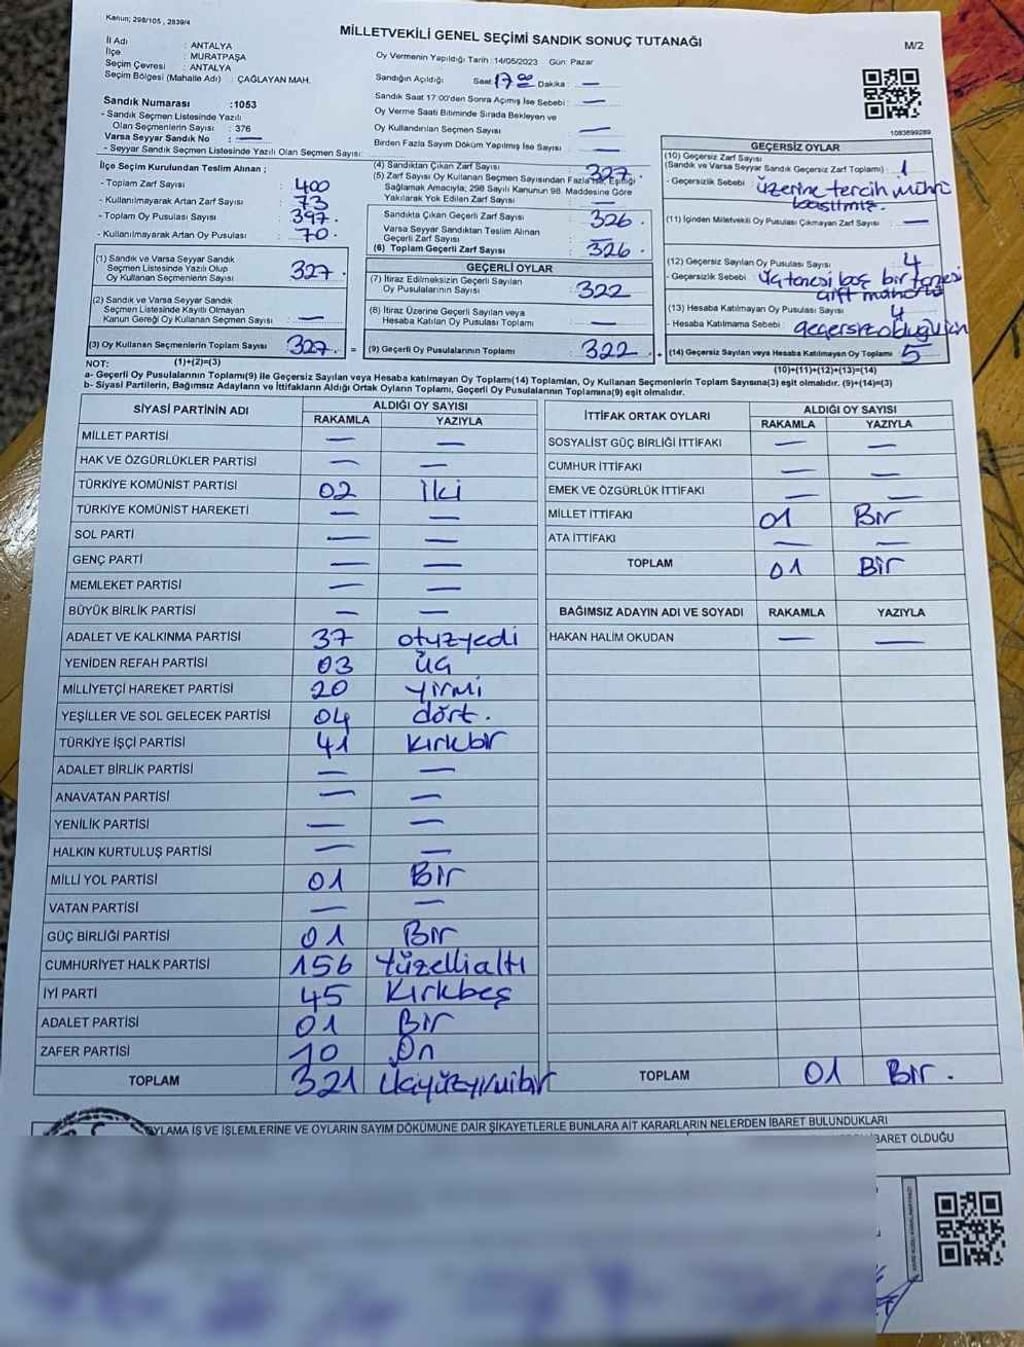 Kanun; 298/105 , 2839/4
MİLLETVEKİLİ GENEL SEÇİMİ SANDIK SONUÇ TUTANAĞI
M/2
İl Adı : ANTALYA
İlçe : MURATPAŞA
Seçim Çevresi : ANTALYA
Seçim Bölgesi (Mahalle Adı) : ÇAĞLAYAN MAH.
Sandık Numarası :1053
- Sandık Seçmen Listesinde Yazılı
Olan Seçmenlerin Sayısı : 376
Varsa Seyyar Sandık No : —
- Seyyar Sandık Seçmen Listesinde Yazılı Olan Seçmen Sayısı:
Oy Vermenin Yapıldığı Tarih :14/05/2023 Gün: Pazar
Sandığın Açıldığı: Saat 17 00 Dakika : —
Sandık Saat 17:00'den Sonra Açımış İse Sebebi : —
Oy Verme Saati Bitiminde Sırada Bekleyen ve
Oy Kullandırılan Seçmen Sayısı —
Birden Fazla Sayım Döküm Yapılmış İse Sayısı : —
1083899289
İlçe Seçim Kurulundan Teslim Alınan ;
- Toplam Zarf Sayısı : 400
- Kullanılmayarak Artan Zarf Sayısı : 73
- Toplam Oy Pusulası Sayısı : 397.
- Kullanılmayarak Artan Oy Pusulası : 70.
(1) Sandık ve Varsa Seyyar Sandık
Seçmen Listesinde Yazılı Olup
Oy Kullanan Seçmenlerin Sayısı : 327.
(2) Sandık ve Varsa Seyyar Sandık
Seçmen Listesinde Kayıtlı Olmayan
Kanun Gereği Oy Kullanan Seçmen Sayısı : —
(3) Oy Kullanan Seçmenlerin Toplam Sayısı : 327. =
(1)+(2)=(3)
(4) Sandıktan Çıkan Zarf Sayısı : 327.
(5) Zarf Sayısı Oy Kullanan Seçmen Sayısından Fazla İse, Eşitliği
Sağlamak Amacıyla; 298 Sayılı Kanunun 98. Maddesine Göre
Yakılarak Yok Edilen Zarf Sayısı : —
Sandıkta Çıkan Geçerli Zarf Sayısı : 326
Varsa Seyyar Sandıktan Teslim Alınan
Geçerli Zarf Sayısı : —
(6) Toplam Geçerli Zarf Sayısı : 326
GEÇERLİ OYLAR
(7) İtiraz Edilmeksizin Geçerli Sayılan
Oy Pusulalarının Sayısı : 322
(8) İtiraz Üzerine Geçerli Sayılan veya
Hesaba Katılan Oy Pusulası Toplamı : —
(9) Geçerli Oy Pusulalarının Toplamı : 322 +
GEÇERSİZ OYLAR
(10) Geçersiz Zarf Sayısı
(Sandık ve Varsa Seyyar Sandık Geçersiz Zarf Toplamı) : 1
- Geçersizlik Sebebi : üzerine tercih mührü
basılmış.
(11) İçinden Milletvekili Oy Pusulası Çıkmayan Zarf Sayısı : —
(12) Geçersiz Sayılan Oy Pusulası Sayısı : 4
- Geçersizlik Sebebi : üç tanesi boş bir tanesi
çift mühürlü
(13) Hesaba Katılmayan Oy Pusulası Sayısı : 4
- Hesaba Katılmama Sebebi : geçersiz olduğu için
(14) Geçersiz Sayılan veya Hesaba Katılmayan Oy Toplamı : 5
(10)+(11)+(12)+(13)=(14)
NOT:
a- Geçerli Oy Pusulalarının Toplamı(9) ile Geçersiz Sayılan veya Hesaba katılmayan Oy Toplamı(14) Toplamları, Oy Kullanan Seçmenlerin Toplam Sayısına(3) eşit olmalıdır. (9)+(14)=(3)
b- Siyasi Partilerin, Bağımsız Adayların ve İttifakların Aldığı Ortak Oyların Toplamı, Geçerli Oy Pusulalarının Toplamına(9) eşit olmalıdır.
SİYASİ PARTİNİN ADI ALDIĞI OY SAYISI
RAKAMLA YAZIYLA
MİLLET PARTİSİ — —
HAK VE ÖZGÜRLÜKLER PARTİSİ — —
TÜRKİYE KOMÜNİST PARTİSİ 02 İki
TÜRKİYE KOMÜNİST HAREKETİ — —
SOL PARTİ — —
GENÇ PARTİ — —
MEMLEKET PARTİSİ — —
BÜYÜK BİRLİK PARTİSİ — —
ADALET VE KALKINMA PARTİSİ 37 otuzyedi
YENİDEN REFAH PARTİSİ 03 üç
MİLLİYETÇİ HAREKET PARTİSİ 20 yirmi
YEŞİLLER VE SOL GELECEK PARTİSİ 04 dört.
TÜRKİYE İŞÇİ PARTİSİ 41 kırkbir
ADALET BİRLİK PARTİSİ — —
ANAVATAN PARTİSİ — —
YENİLİK PARTİSİ — —
HALKIN KURTULUŞ PARTİSİ — —
MİLLİ YOL PARTİSİ 01 Bir
VATAN PARTİSİ — —
GÜÇ BİRLİĞİ PARTİSİ 01 Bir
CUMHURİYET HALK PARTİSİ 156 Yüzellialtı
İYİ PARTİ 45 Kırkbeş
ADALET PARTİSİ 01 Bir
ZAFER PARTİSİ 10 On
TOPLAM 321 Üçyüzyirmibir
İTTİFAK ORTAK OYLARI ALDIĞI OY SAYISI
RAKAMLA YAZIYLA
SOSYALİST GÜÇ BİRLİĞİ İTTİFAKI — —
CUMHUR İTTİFAKI — —
EMEK VE ÖZGÜRLÜK İTTİFAKI — —
MİLLET İTTİFAKI 01 Bir
ATA İTTİFAKI — —
TOPLAM 01 Bir
BAĞIMSIZ ADAYIN ADI VE SOYADI RAKAMLA YAZIYLA
HAKAN HALİM OKUDAN — —
TOPLAM 01 Bir.
OYLAMA İŞ VE İŞLEMLERİNE VE OYLARIN SAYIM DÖKÜMÜNE DAİR ŞİKAYETLERLE BUNLARA AİT KARARLARIN NELERDEN İBARET BULUNDUKLARI
İBARET OLDUĞU